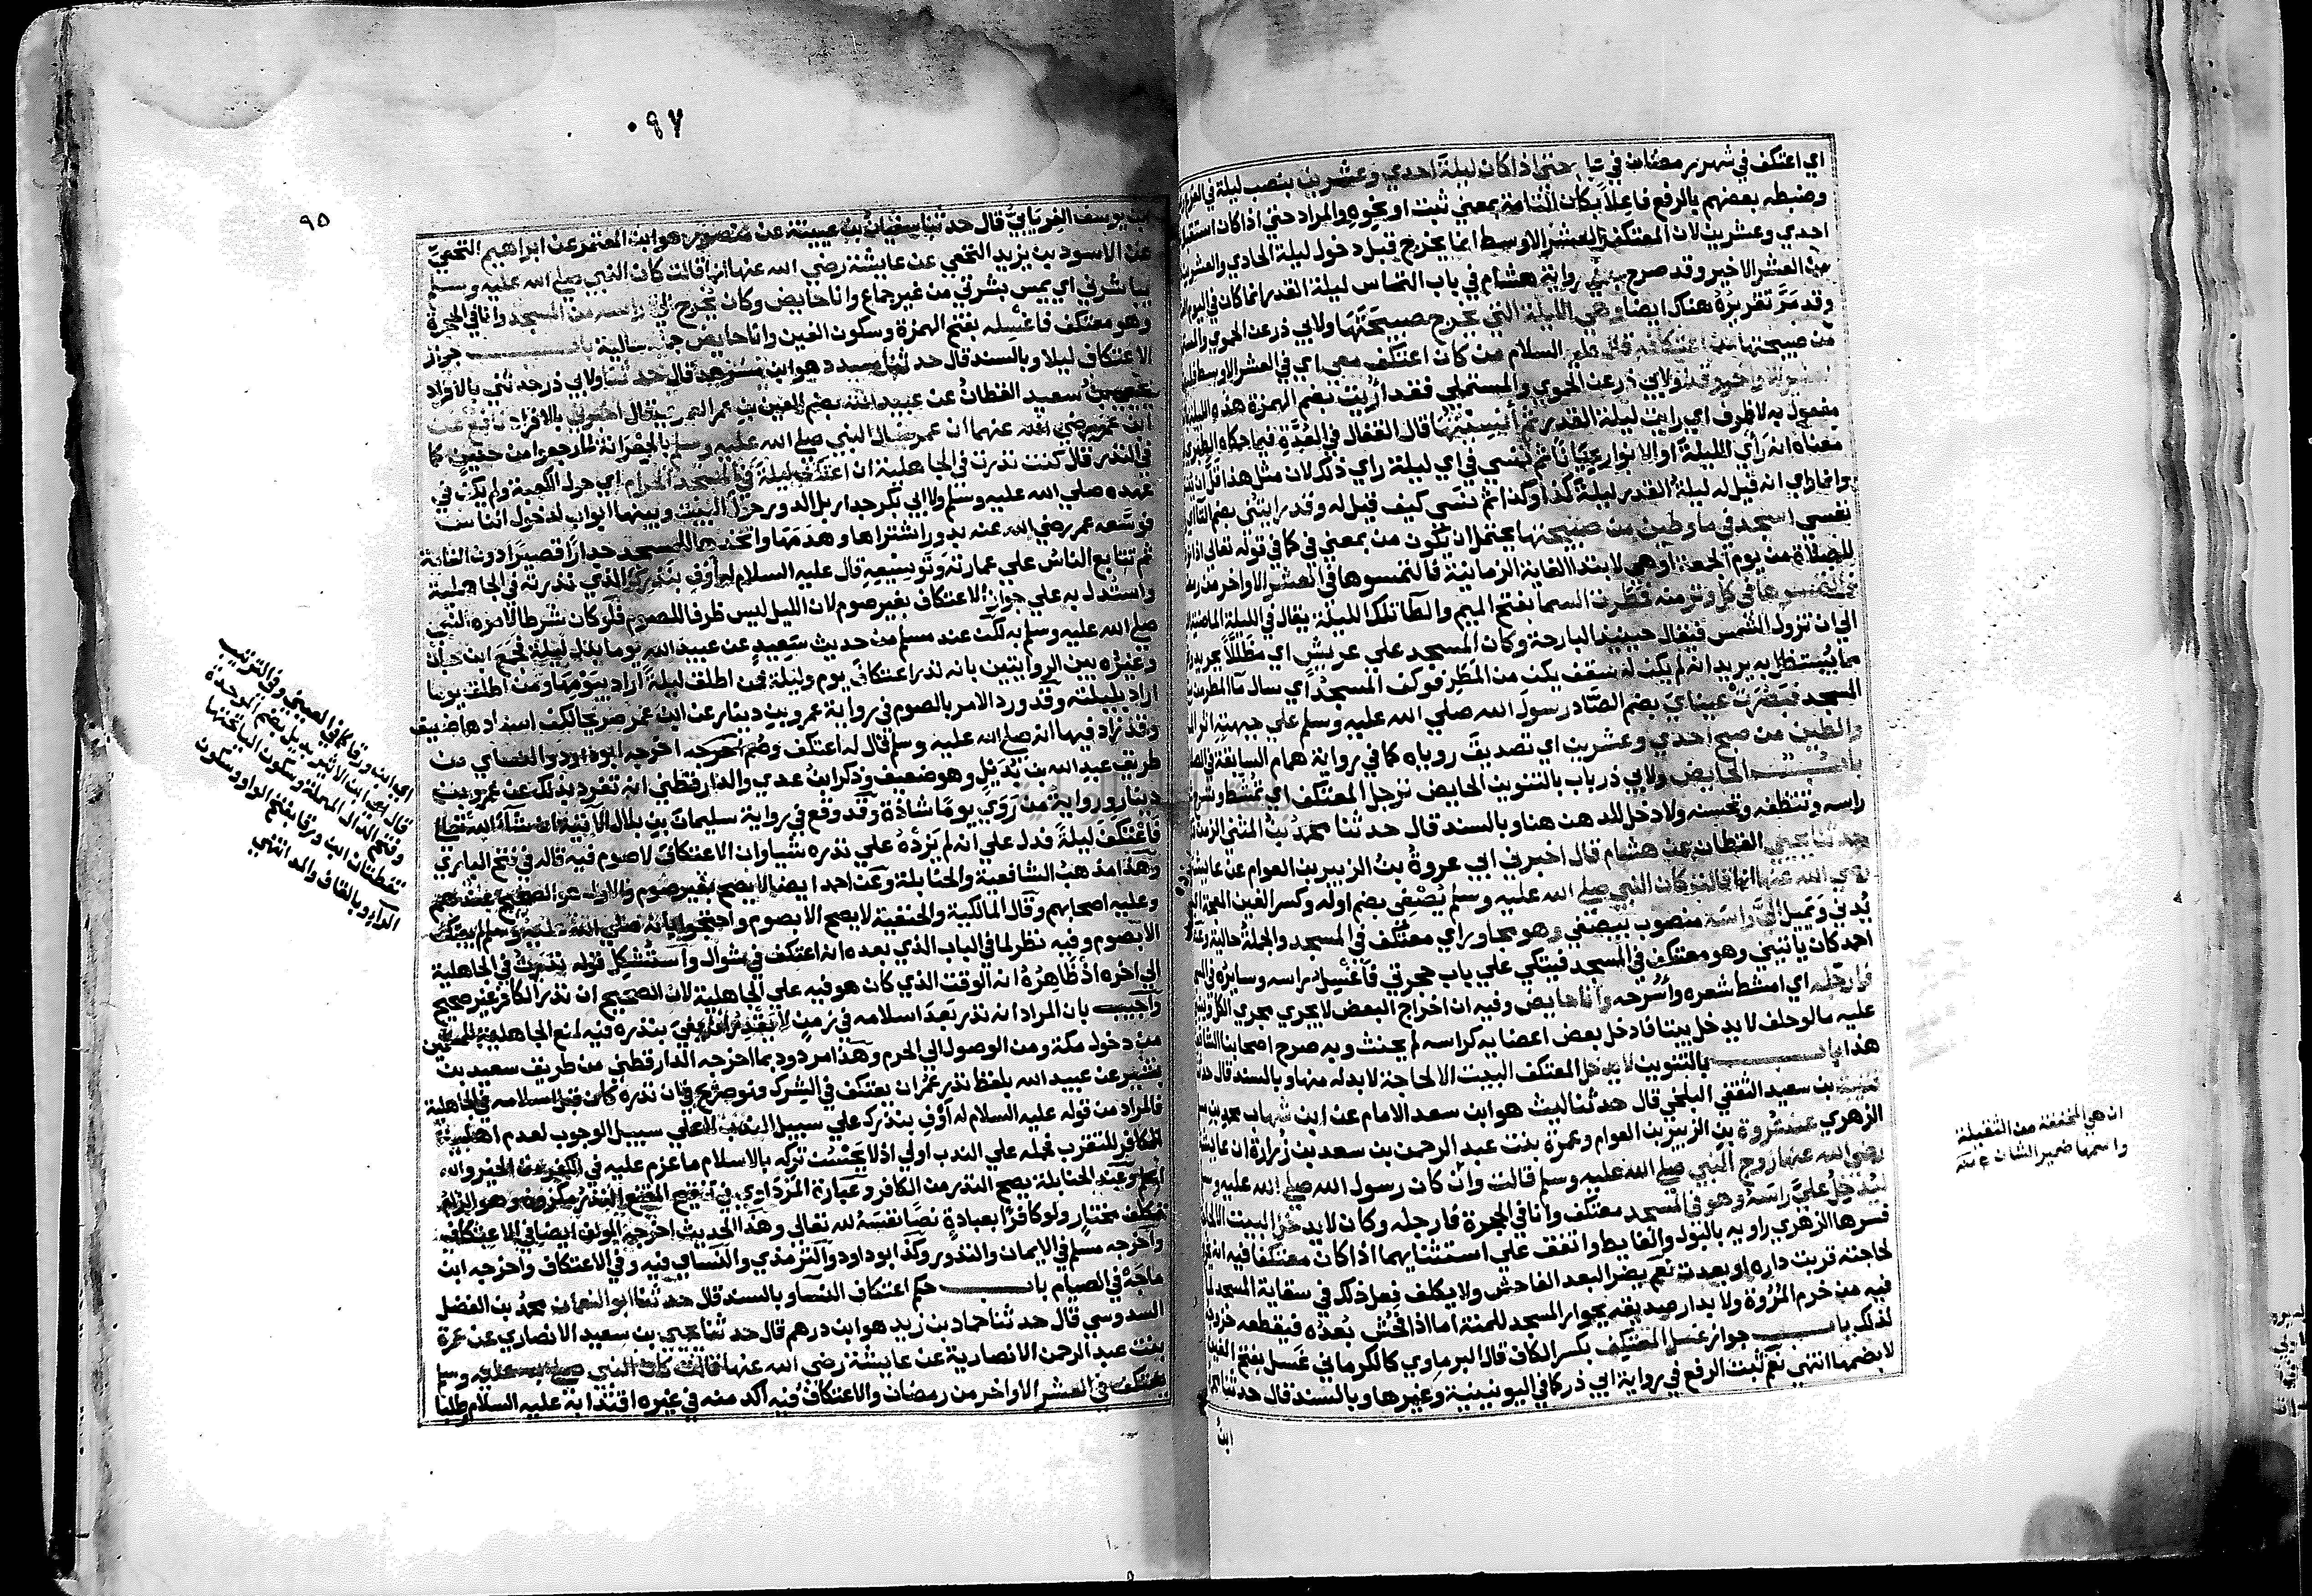 اي اعتكف في شهر رمضان في حتي اذا كان ليلة احدي وعشرين بنصب ليلة في الفرع
وضبطه بعضهم بالرفع فاعلا بكان التامة بمعني ثبت او نحوه والمراد حتي اذا كان استقبال
احدي وعشرين لان المعتكف العشر الاوسط انما يخرج قبل دخول ليلة الحادي والعشرين
من العشر الاخير وقد صرح في رواية هشام في باب التماس ليلة القدر انما كان في اليوم
وقد مر تقريره هناك ايضا وهي الليلة التي يخرج صبيحتها ولابي ذر عن الحموي
من صبيحتها من اعتكافه قال عليه السلام من كان اعتكف معي اي في العشر الاوسط
ولابي ذر عن الحموي والمستملي فقد اريت بضم الهمزة هذه الليلة
مفعول به لا ظرف اي رايت ليلة القدر ثم أنسيتها قال القفال في العدة فيما حكاه الطبري
معناه انه رأي الليلة او الانوار عيانا ثم نسي في اي ليلة راي ذلك لان مثل هذا قل ان
وانما راي انه قيل له ليلة القدر ليلة كذا وكذا ثم نسي كيف قيل له وقد رايتني بضم التا
نفسي اسجد في ما وطين من صبيحتها يحتمل ان يكون من بمعني في كما في قوله تعالي اذا
للصلاة من يوم الجمعة او هي لابتدا الغاية الزمانية فالتمسوها في العشر الاواخر من
في كل وتر منه فمطرت السما بفتح الميم والطا تلك الليلة يقال في الليلة الماضية
الي ان تزول الشمس فيقال حينيذ البارحة وكان المسجد علي عريش اي مظللا بجريد
مما يستظل به يريد انه لم يكن له سقف يكن من المطر فوكف المسجد اي سال ما المطر من
المسجد فبصرت عيناي بضم الصاد رسول الله صلي الله عليه وسلم علي جبهته اثر الما
والطين من صبح احدي وعشرين اي تصديق روياه كما في رواية همام السابقة في
باب الحايض ولابي ذر باب بالتنوين الحايض ترجل المعتكف اي تمشط
راسه وتنظفه وتحسنه ولا دخل للدهن هنا وبالسند قال حدثنا محمد بن المثني الزمن
حدثنا يحيي القطان عن هشام قال اخبرني ابي عروة بن الزبير بن العوام عن عايشة
رضي الله عنها انها قالت كان النبي صلي الله عليه وسلم يصغي بضم اوله وكسر الغين المعجمة
يدني ويميل الي راسه منصوب بيصغي وهو مجاور اي معتكف في المسجد والجملة حالية وعند
احمد كان ياتيني وهو معتكف في المسجد فيتكي علي باب حجرتي فاغسل راسه وسايره في
فارجله اي امشط شعره واسرحه وانا حايض وفيه ان اخراج البعض لا يجري مجري الكل
عليه ما لو حلف لا يدخل بيتا فادخل بعض اعضايه كراسه لم يحنث وبه صرح اصحابنا
هذا باب بالتنوين لا يدخل المعتكف البيت الا لحاجة لا بد له منها وبالسند قال
قتيبة بن سعيد الثقفي البلخي قال حدثنا ليث هو ابن سعد الامام عن ابن شهاب محمد بن
الزهري عن عروة بن الزبير بن العوام وعمرة بنت عبد الرحمن بن سعد بن زرارة ان عايشة
رضي الله عنها زوج النبي صلي الله عليه وسلم قالت وان كان رسول الله صلي الله عليه وسلم
ليدخل علي راسه وهو في المسجد معتكف وانا في الحجرة فارجله وكان لا يدخل البيت الا لحاجة
فسرها الزهري راويه بالبول والغايط واتفق علي استثنايهما اذا كان معتكفا فيه
لحاجته قربت داره او بعدت نعم يضر البعد الفاحش ولا يكلف فعل ذلك في سقاية المسجد لما
فيه من خرم المروة ولا بدار صديقه بجوار المسجد للمنة اما اذا فحش بعده فيقطعه
لذلك باب جواز غسل المعتكف بكسر الكاف قال البرماوي كالكرماني غسل بفتح الغين
لا بضمها انتهي نعم ثبت الرفع في رواية ابي ذر كما في اليونينية وغيرها وبالسند قال حدثنا محمد
ابن
ان هي المخففة من الثقيلة
واسمها ضمير الشان
٠٩٧
٩٥
ابن يوسف الفريابي قال حدثنا سفيان بن عيينة عن منصور هو ابن المعتمر عن ابراهيم النخعي
عن الاسود بن يزيد النخعي عن عايشة رضي الله عنها انها قالت كان النبي صلي الله عليه وسلم
يباشرني اي يمس بشرتي من غير جماع وانا حايض وكان يخرج الي راسه من المسجد وانا في الحجرة
وهو معتكف فاغسله بفتح الهمزة وسكون الغين وانا حايض جملة حالية باب جواز
الاعتكاف ليلا وبالسند قال حدثنا مسدد هو ابن مسرهد قال حدثنا ولابي ذر حدثني بالافراد
يحيي بن سعيد القطان عن عبيد الله بضم العين بن عمر العمري قال اخبرني بالافراد نافع عن
ابن عمر رضي الله عنهما ان عمر سال النبي صلي الله عليه وسلم بالجعرانة لما رجعوا من حنين كما
في النذر قال كنت نذرت في الجاهلية ان اعتكف ليلة في المسجد الحرام اي حول الكعبة ولم يكن في
عهده صلي الله عليه وسلم ولا ابي بكر جدار بل الدور حول البيت وبينها ابواب لدخول الناس
فوسعه عمر رضي الله عنه بدور اشتراها وهدمها واتخذ للمسجد جدارا قصيرا دون القامة
ثم تتابع الناس علي عمارته وتوسيعه قال عليه السلام له أوف بنذرك الذي نذرته في الجاهلية
واستدل به علي جواز الاعتكاف بغير صوم لان الليل ليس ظرفا للصوم فلو كان شرطا لامره النبي
صلي الله عليه وسلم به لكن عند مسلم من حديث سعيد عن عبيد الله يوما بدل ليلة فجمع ابن حبان
وغيره بين الروايتين بانه نذر اعتكاف يوم وليلة فمن اطلق ليلة اراد بيومها ومن اطلق يوما
اراد بليلته وقد ورد الامر بالصوم في رواية عمرو بن دينار عن ابن عمر صريحا لكن اسنادها ضعيف
وقد زاد فيها انه صلي الله عليه وسلم قال له اعتكف وصم اخرجه ابو داود والنساي من
طريق عبد الله بن بديل وهو ضعيف وذكر ابن عدي والدارقطني انه تفرد بذلك عن عمرو بن
دينار ورواية من روي يوما شاذة وقد وقع في رواية سليمان بن بلال الاتية ان شاء الله تعالي
فاعتكف ليلة فدل علي انه لم يزد علي نذره شيا وان الاعتكاف لا صوم فيه قاله في فتح الباري
وهذا مذهب الشافعية والحنابلة وعن احمد ايضا لا يصح بغير صوم والاول هو الصحيح عندهم
وعليه اصحابهم وقال المالكية والحنفية لا يصح الا بصوم واحتجوا بانه صلي الله عليه وسلم لم يعتكف
الا بصوم وفيه نظر لما في الباب الذي بعده انه اعتكف في شوال واستشكل قوله نذرت في الجاهلية
الي اخره اذ ظاهره ان الوقت الذي كان هو فيه علي الجاهلية لان الصحيح ان نذر الكافر غير صحيح
واجيب بان المراد انه نذر بعد اسلامه في زمن لا يقدر ان يفي بنذره فيه لمنع الجاهلية للمسلمين
من دخول مكة ومن الوصول الي الحرم وهذا مردود بما اخرجه الدارقطني من طريق سعيد بن
بشير عن عبيد الله بلفظ نذر عمر ان يعتكف في الشرك فهو صريح في ان نذره كان قبل اسلامه في الجاهلية
فالمراد من قوله عليه السلام له اوف بنذرك علي سبيل الندب لا علي سبيل الوجوب لعدم اهلية
الكافر للتقرب فحمله علي الندب اولي اذ لا يحسن تركه بالاسلام ما عزم عليه في الكفر من الخير والله
اعلم وعند الحنابلة يصح النذر من الكافر وعبارة المرداوي في تنقيح المقنع النذر مكروه وهو الزام
مكلف مختار ولو كافرا بعبادة نصا نفسه لله تعالي وهذا الحديث اخرجه المولف ايضا في الاعتكاف
واخرجه مسلم في الايمان والنذور وكذا ابو داود والترمذي والنساي فيه وفي الاعتكاف واخرجه ابن
ماجة في الصيام باب حكم اعتكاف النسا وبالسند قال حدثنا ابو النعمان محمد بن الفضل
السدوسي قال حدثنا حماد بن زيد هو ابن درهم قال حدثنا يحيي بن سعيد الانصاري عن عمرة
بنت عبد الرحمن الانصارية عن عايشة رضي الله عنها قالت كان النبي صلي الله عليه وسلم
يعتكف في العشر الاواخر من رمضان والاعتكاف فيه اكد منه في غيره اقتدا به عليه السلام وطلبا
اي ابن ورقا كما في العيني وفي الترتيب
قال اي ابن الاثير بديل بضم الموحدة
وفتح الدال المهملة وسكون اليا تحتها
نقطتان ابن ورقا بفتح الواو وسكون
الراء وبالقاف والمد انتهي